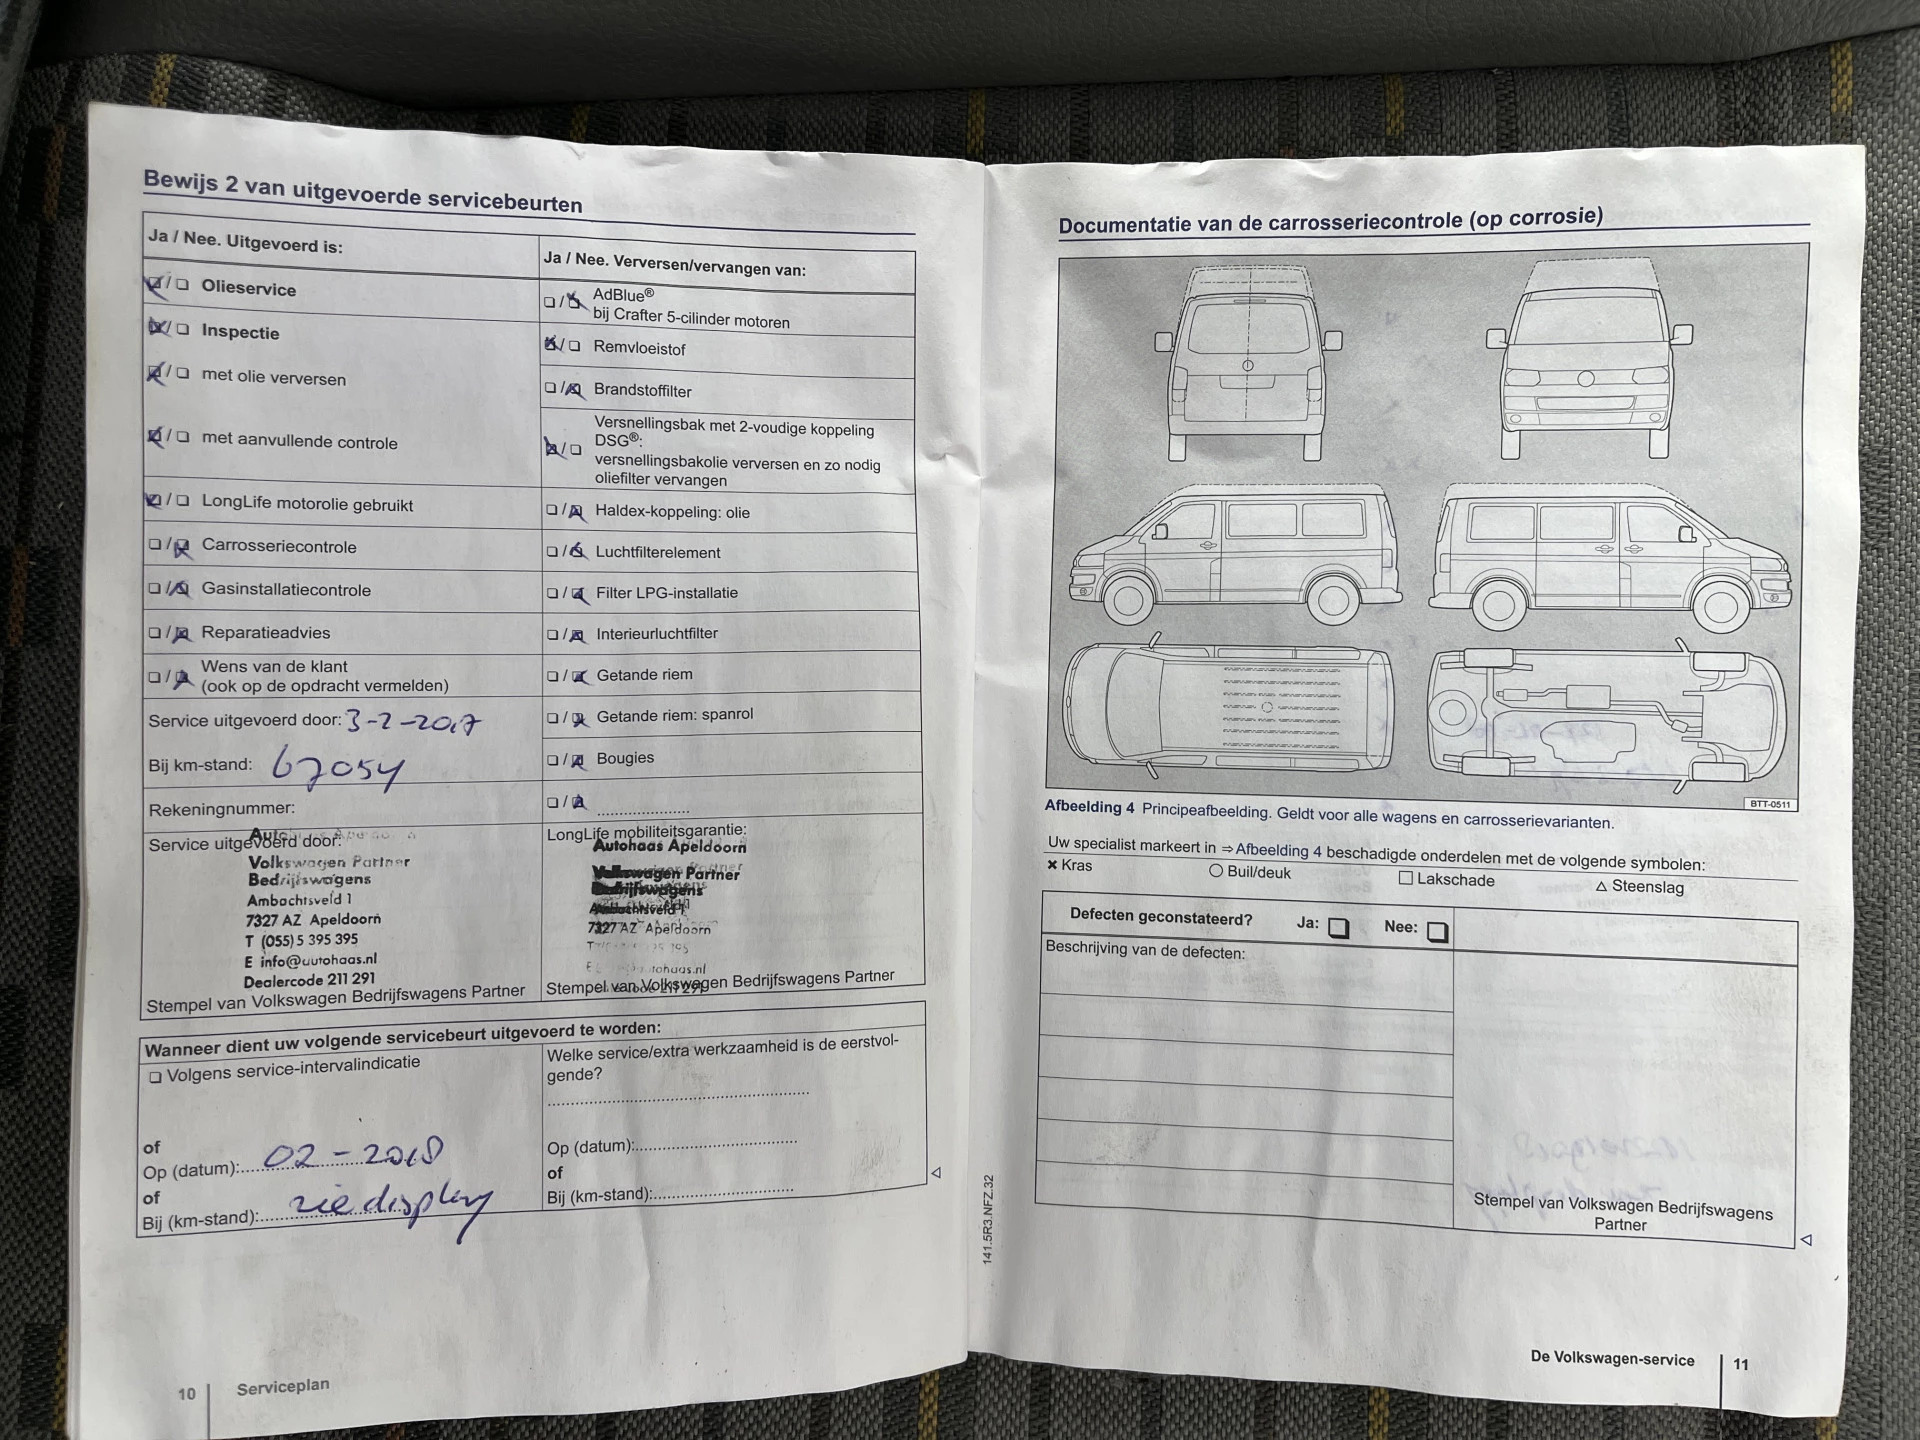 Bewijs 2 van uitgevoerde servicebeurten
Ja / Nee. Uitgevoerd is:
Olieservice
Inspectie
met olie verversen
met aanvullende controle
LongLife motorolie gebruikt
Carrosseriecontrole
Gasinstallatiecontrole
Reparatieadvies
Wens van de klant
(ook op de opdracht vermelden)
Service uitgevoerd door: 3-2-2017
Bij km-stand: 67054
Rekeningnummer:
Service uitgevoerd door:
Volkswagen Partner
Bedrijfswagens
Ambachtsveld 1
7327 AZ Apeldoorn
T (055) 5 395 395
E info@autohaas.nl
Dealercode 211 291
Stempel van Volkswagen Bedrijfswagens Partner
Ja / Nee. Verversen/vervangen van:
AdBlue®
bij Crafter 5-cilinder motoren
Remvloeistof
Brandstoffilter
Versnellingsbak met 2-voudige koppeling
DSG®:
versnellingsbakolie verversen en zo nodig
oliefilter vervangen
Haldex-koppeling: olie
Luchtfilterelement
Filter LPG-installatie
Interieurluchtfilter
Getande riem
Getande riem: spanrol
Bougies
LongLife mobiliteitsgarantie:
Autohaas Apeldoorn
Volkswagen Partner
Bedrijfswagens
Ambachtsveld 1
7327 AZ Apeldoorn
Stempel van Volkswagen Bedrijfswagens Partner
Wanneer dient uw volgende servicebeurt uitgevoerd te worden:
Volgens service-intervalindicatie
of
Op (datum): 02-2018
of
Bij (km-stand): zie display
Welke service/extra werkzaamheid is de eerstvol-
gende?
Op (datum):
of
Bij (km-stand):
10 Serviceplan
141.5R3.NFZ.32
Documentatie van de carrosseriecontrole (op corrosie)
BTT-0511
Afbeelding 4 Principeafbeelding. Geldt voor alle wagens en carrosserievarianten.
Uw specialist markeert in ⇒ Afbeelding 4 beschadigde onderdelen met de volgende symbolen:
Kras Buil/deuk Lakschade Steenslag
Defecten geconstateerd? Ja: Nee:
Beschrijving van de defecten:
Stempel van Volkswagen Bedrijfswagens
Partner
De Volkswagen-service 11